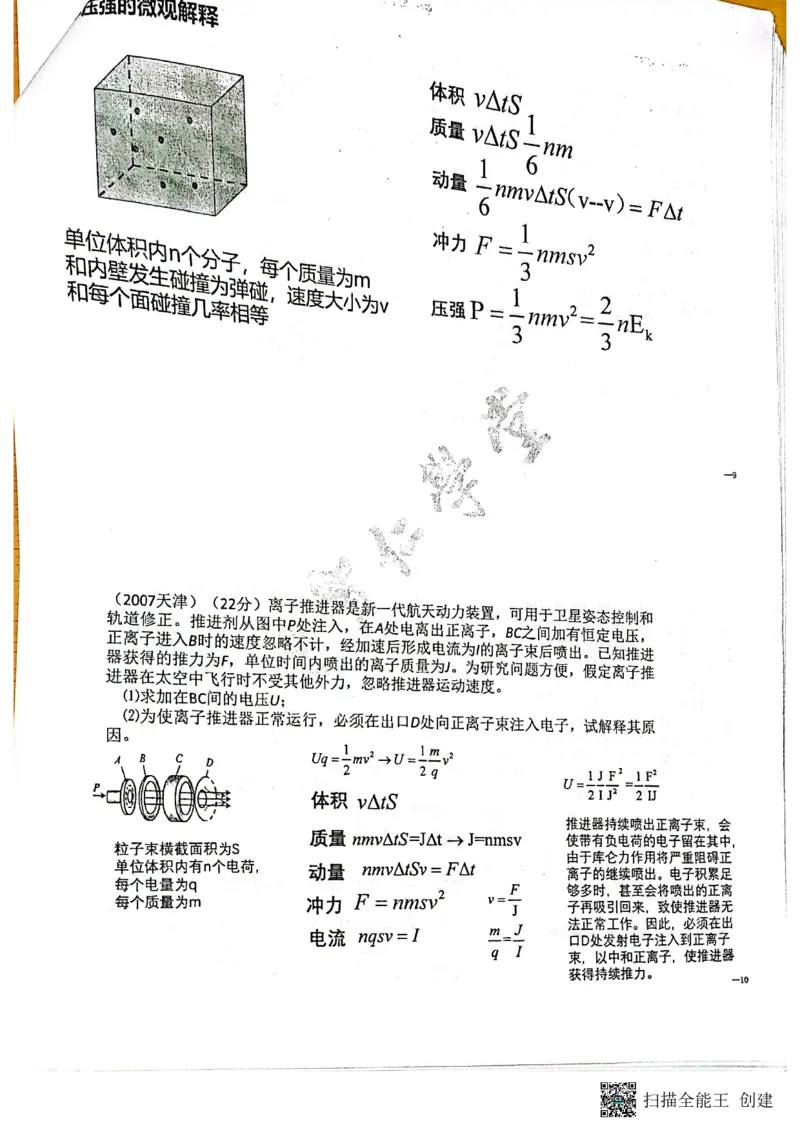 压强的微观解释
体积 vΔtS
质量 vΔtS 1/6 nm
动量 1/6 nmvΔtS(v--v) = FΔt
冲力 F = 1/3 nmsv²
压强 P = 1/3 nmv² = 2/3 nE_k
单位体积内n个分子，每个质量为m
和内壁发生碰撞为弹碰，速度大小为v
和每个面碰撞几率相等
—9
（2007天津）（22分）离子推进器是新一代航天动力装置，可用于卫星姿态控制和
轨道修正。推进剂从图中P处注入，在A处电离出正离子，BC之间加有恒定电压，
正离子进入B时的速度忽略不计，经加速后形成电流为I的离子束后喷出。已知推进
器获得的推力为F，单位时间内喷出的离子质量为J。为研究问题方便，假定离子推
进器在太空中飞行时不受其他外力，忽略推进器运动速度。
⑴求加在BC间的电压U；
⑵为使离子推进器正常运行，必须在出口D处向正离子束注入电子，试解释其原
因。
A B C D
P
粒子束横截面积为S
单位体积内有n个电荷，
每个电量为q
每个质量为m
Uq = 1/2 mv² → U = 1/2 m/q v²
体积 vΔtS
质量 nmvΔtS=JΔt → J=nmsv
动量 nmvΔtSv = FΔt
冲力 F = nmsv² v = F/J
电流 nqsv = I m/q = J/I
U = 1/2 J/I F²/J² = 1/2 F²/IJ
推进器持续喷出正离子束，会
使带有负电荷的电子留在其中，
由于库仑力作用将严重阻碍正
离子的继续喷出。电子积累足
够多时，甚至会将喷出的正离
子再吸引回来，致使推进器无
法正常工作。因此，必须在出
口D处发射电子注入到正离子
束，以中和正离子，使推进器
获得持续推力。
—10
扫描全能王 创建